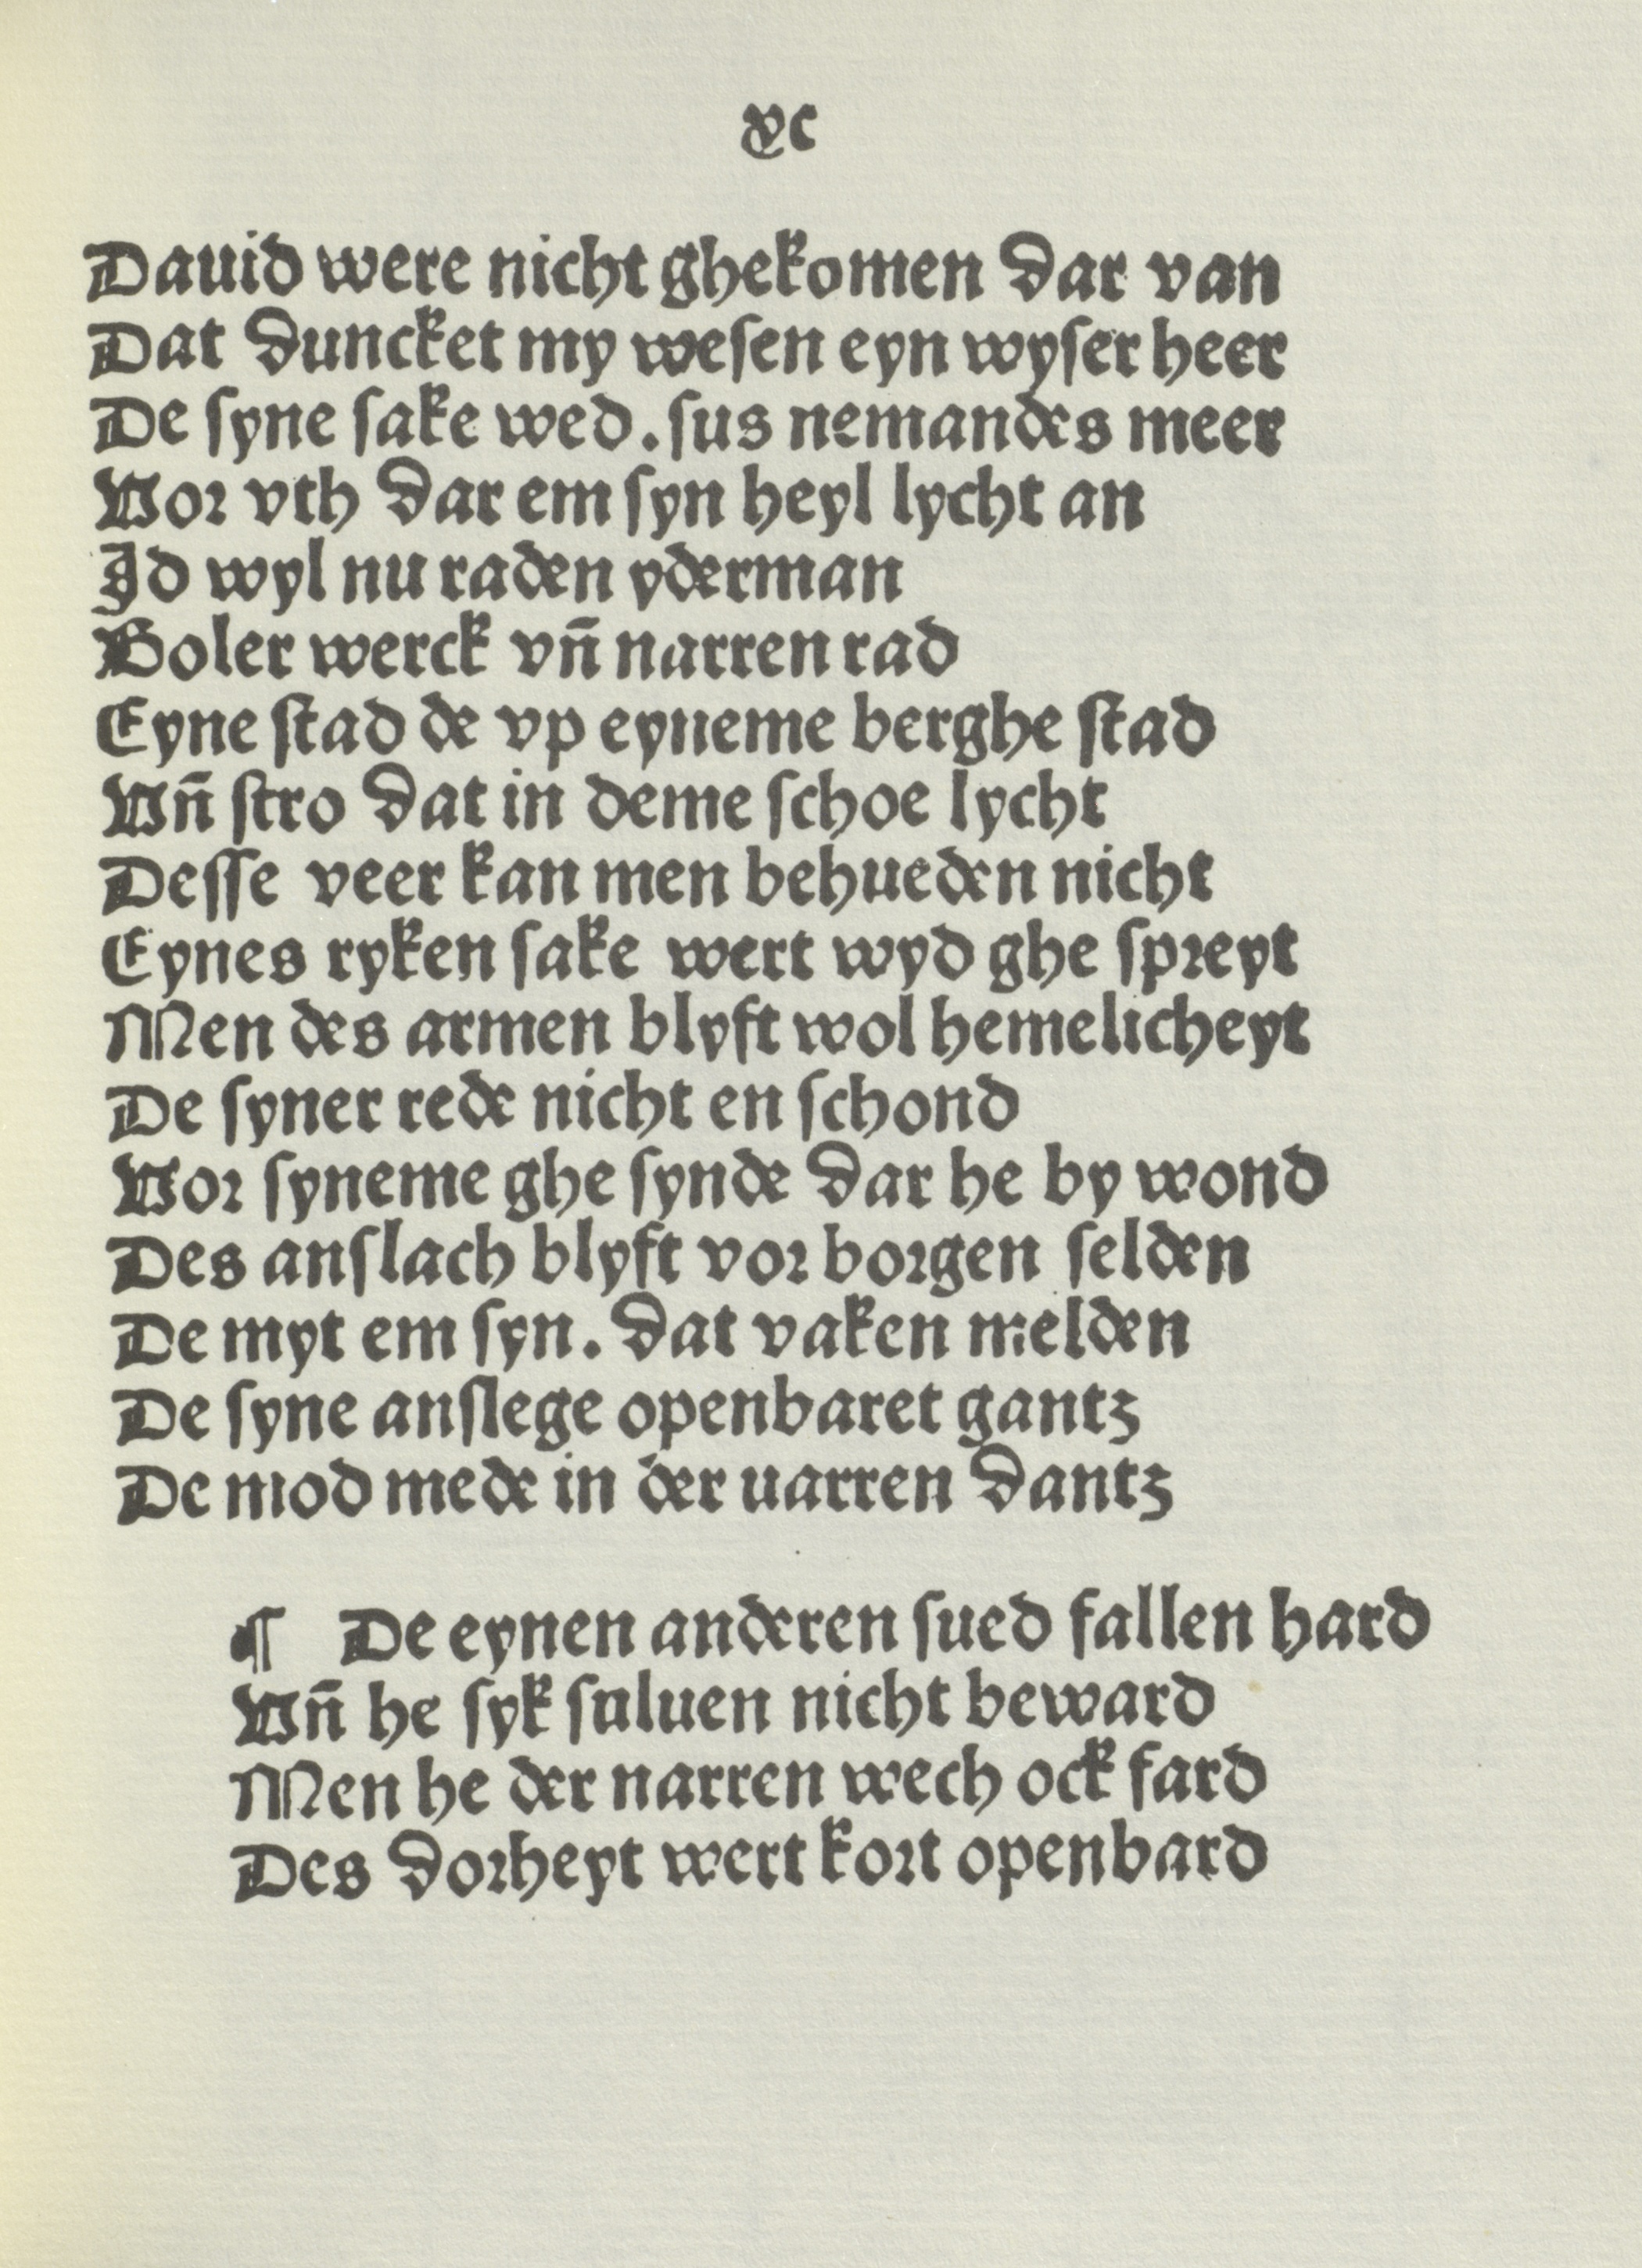 xc
Dauid were nicht ghekomen dar van
Dat duncket my weſen eyn wyſer heer
De ſyne ſake wed. ſus nemandes meer
Vor vth dar em ſyn heyl lycht an
Id wyl nu raden yderman
Boler werck vn̄ narren rad
Eyne ſtad de vp eyneme berghe ſtad
Vn̄ ſtro dat in deme ſchoe lycht
Deſſe veer kan men behueden nicht
Eynes ryken ſake wert wyd ghe ſpreyt
Men des armen blyft wol hemelicheyt
De ſyner rede nicht en ſchond
Vor ſyneme ghe ſynde dar he by wond
Des anſlach blyft vor borgen ſelden
De myt em ſyn. dat vaken melden
De ſyne anſlege openbaret gantz
De mod mede in der uarren dantz
¶ De eynen anderen ſued fallen hard
Vn̄ he ſyk ſuluen nicht beward
Men he der narren wech ock fard
Des dorheyt wert kort openbard